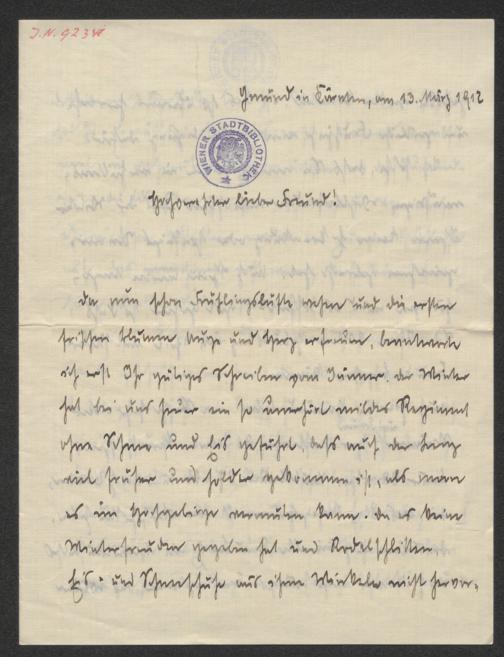 J.N. 923
Gmünd in Kärnten, am 13. März 1912
WIENER STADTBIBLIOTHEK
Hochverehrter lieber Freund!
Da nun schon Frühlingslüfte wehen und die ersten
frischen Blumen Auge und Herz erfreuen, beantworte
ich erst Ihr gütiges Schreiben vom Jänner. Der Winter
hat bei uns heuer ein so unerhört mildes Regiment
ohne Schnee und Eis geführt, daß auch der Lenz
viel früher und holder gekommen ist, als man
es im Hochgebirge vermuten kann. Da es keine
Winterfreuden gegeben hat und Rodelschlitten
Eis- und Schneeschuhe aus ihren Winkeln nicht hervor-